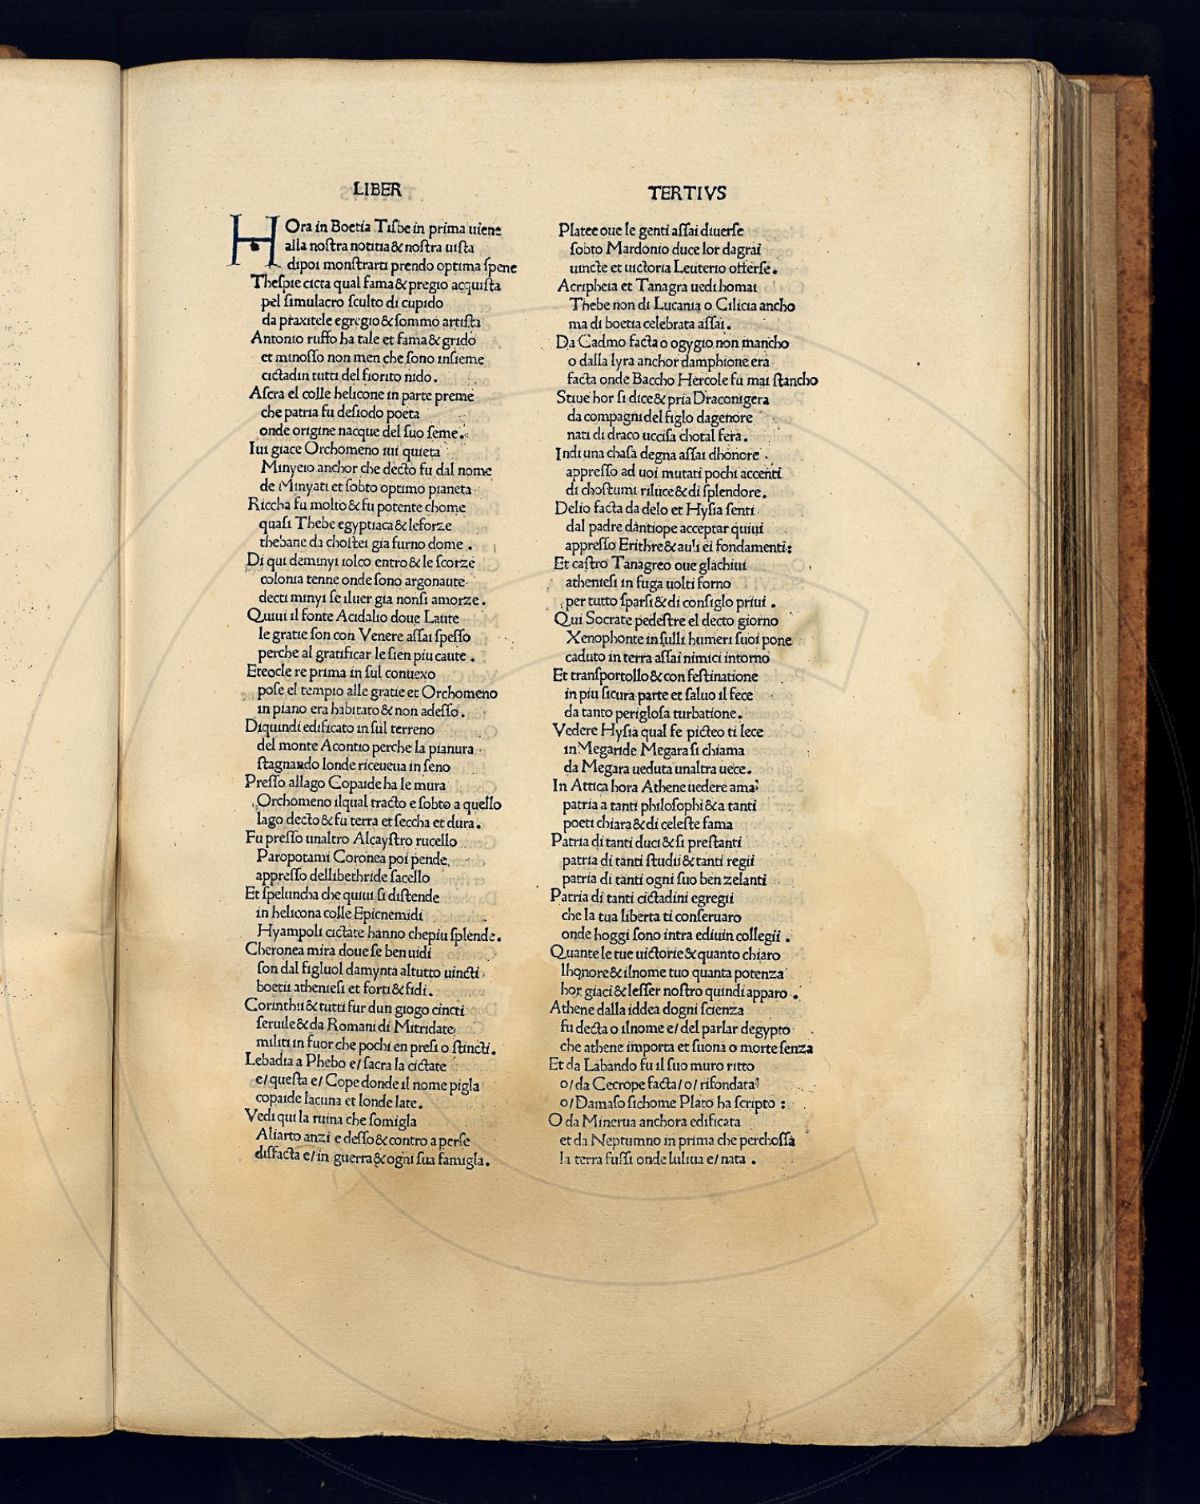 LIBER
HOra in Boetia Tiſbe in prima uiene
alla noſtra notitia & noſtra uiſta
dipoi monſtrarti prendo optima ſpene
Theſpie cicta qual fama & pregio acquiſta
pel ſimulacro ſculto di cupido
da praxitele egregio & ſommo artiſta
Antonio ruffo ha tale et fama & grido
et minoſſo non men che ſono inſieme
cictadin tutti del fiorito nido.
Aſcra el colle helicone in parte preme
che patria fu deſiodo poeta
onde origine nacque del ſuo ſeme.
Iui giace Orchomeno iui quieta
Minyeio anchor che decto fu dal nome
de Minyati et ſobto optimo pianeta
Riccha fu molto & fu potente chome
quaſi Thebe egyptiaca & leforze
thebane da choſtei gia furno dome.
Di qui deminyi iolco entro & le ſcorze
colonia tenne onde ſono argonaute
decti minyi ſe iluer gia nonſi amorze.
Quiui il fonte Acidalio doue Laute
le gratie ſon con Venere aſſai ſpeſſo
perche al gratificar le ſien piu caute.
Eteocle re prima in ſul conuexo
poſe el tempio alle gratie et Orchomeno
in piano era habitato & non adeſſo.
Diquindi edificato in ſul terreno
del monte Acontio perche la pianura
ſtagnando londe riceueua in ſeno
Preſſo allago Copaide ha le mura
Orchomeno ilqual tracto e ſobto a quello
lago decto & fu terra et ſeccha et dura.
Fu preſſo unaltro Alcayſtro rucello
Paropotami Coronea poi pende
appreſſo dellibethride ſacello
Et ſpeluncha che quiui ſi diſtende
in helicona colle Epicnemidi
Hyampoli cictate hanno chepiu ſplende.
Cheronea mira doue ſe ben uidi
ſon dal figluol damynta altutto uincti
boetii athenieſi et forti & fidi.
Corinthii & tutti fur dun giogo cincti
ſeruile & da Romani di Mitridate
militi in fuor che pochi en preſi o ſtincti.
Lebadia a Phebo e/ ſacra la cictate
e/ queſta e/ Cope donde il nome pigla
copaide lacuna et londe late.
Vedi qui la ruina che ſomigla
Aliarto anzi e deſſo & contro a perſe
diſfacta e/ in guerra & ogni ſua famigla.
TERTIVS
Platee oue le genti aſſai diuerſe
ſobto Mardonio duce lor dagrai
uincte et uictoria Leuterio offerſe.
Acripheia et Tanagra uedi homai
Thebe non di Lucania o Cilicia ancho
ma di boetia celebrata aſſai.
Da Cadmo facta o ogygio non mancho
o dalla lyra anchor damphione era
facta onde Baccho Hercole fu mai ſtancho
Stiue hor ſi dice & pria Draconigera
da compagni del figlo dagenore
nati di draco ucciſa chotal fera.
Indi una chaſa degna aſſai dhonore
appreſſo ad uoi mutati pochi accenti
di choſtumi riluce & di ſplendore.
Delio facta da delo et Hyſia ſenti
dal padre dantiope acceptar quiui
appreſſo Erithre & auli ei fondamenti:
Et caſtro Tanagreo oue glachiui
athenieſi in fuga uolti forno
per tutto ſparſi & di conſiglo priui.
Qui Socrate pedeſtre el decto giorno
Xenophonte in ſulli humeri ſuoi pone
caduto in terra aſſai nimici intorno
Et tranſportollo & con feſtinatione
in piu ſicura parte et ſaluo il fece
da tanto perigloſa turbatione.
Vedere Hyſia qual fe picteo ti lece
in Megaride Megara ſi chiama
da Megara ueduta unaltra uece.
In Attica hora Athene uedere ama
patria a tanti philoſophi & a tanti
poeti chiara & di celeſte fama
Patria di tanti duci & ſi preſtanti
patria di tanti ſtudii & tanti regii
patria di tanti ogni ſuo ben zelanti
Patria di tanti cictadini egregii
che la tua liberta ti conſeruaro
onde hoggi ſono intra ediuin collegii.
Quante le tue uictorie & quanto chiaro
lhonore & ilnome tuo quanta potenza
hor giaci & leſſer noſtro quindi apparo.
Athene dalla iddea dogni ſcienza
fu decta o ilnome e/ del parlar degypto
che athene importa et ſuona o morte ſenza
Et da Labando fu il ſuo muro ritto
o/ da Cecrope facta/ o/ rifondata
o/ Damaſo ſichome Plato ha ſcripto:
O da Minerua anchora edificata
et da Neptumno in prima che perchoſſa
la terra fuſſi onde luliua e/ nata.